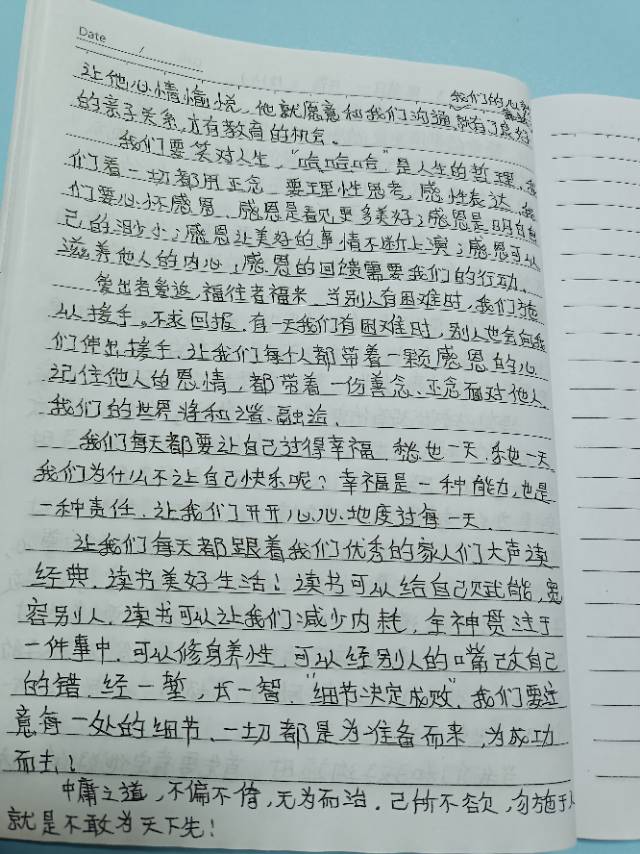 Date /
我们的心亲
让他心情愉悦,他就愿意和我们沟通,就有了良好
的亲子关系,才有教育的机会。
我们要笑对人生,“哈哈哈”是人生的哲理,我
们看一切都用正念,要理性思考,感性表达,我
们要心怀感恩,感恩是看见更多美好;感恩是明白自
己的渺小;感恩让美好的事情不断上演;感恩可以
滋养他人的内心;感恩的回馈需要我们的行动。
爱出者爱返,福往者福来,当别人有困难时,我们施
以援手,不求回报,有一天我们有困难时,别人也会向我
们伸出援手,让我们每个人都带着一颗感恩的心
记住他人的恩情,都带着一份善念、正念面对他人
我们的世界将和谐、融洽.
我们每天都要让自己过得幸福,愁也一天,乐也一天
我们为什么不让自己快乐呢?幸福是一种能力,也是
一种责任.让我们开开心心地度过每一天.
让我们每天都跟着我们优秀的家人们大声读
经典,读书美好生活!读书可以给自己赋能,宽
容别人,读书可以让我们减少内耗,全神贯注于
一件事中,可以修身养性,可以经别人的嘴改自己
的错.经一堑,长一智,“细节决定成败”,我们要注
意每一处的细节,一切都是为准备而来,为成功
而生!
中庸之道,不偏不倚,无为而治.己所不欲,勿施于人
就是不敢为天下先!